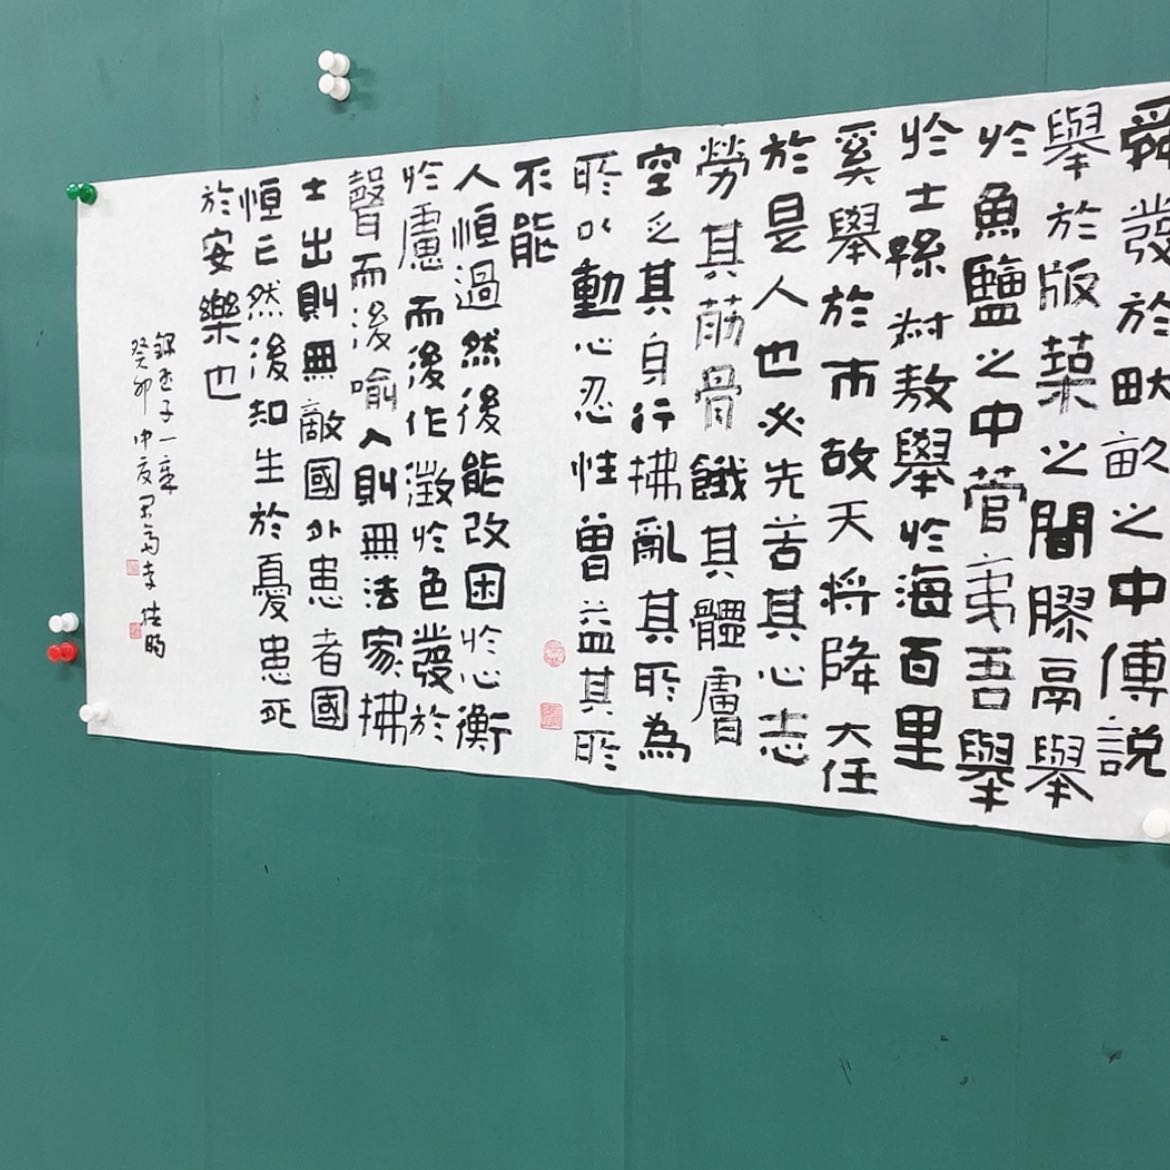 舜發於畎畝之中傅說
舉於版築之間膠鬲舉
於魚鹽之中管夷吾舉
於士孫叔敖舉於海百里
奚舉於市故天將降大任
於是人也必先苦其心志
勞其筋骨餓其體膚
空乏其身行拂亂其所為
所以動心忍性曾益其所
不能
人恒過然後能改困於心衡
於慮而後作徵於色發於
聲而後喻入則無法家拂
士出則無敵國外患者國
恒亡然後知生於憂患死
於安樂也
錄孟子一章
癸卯中夏